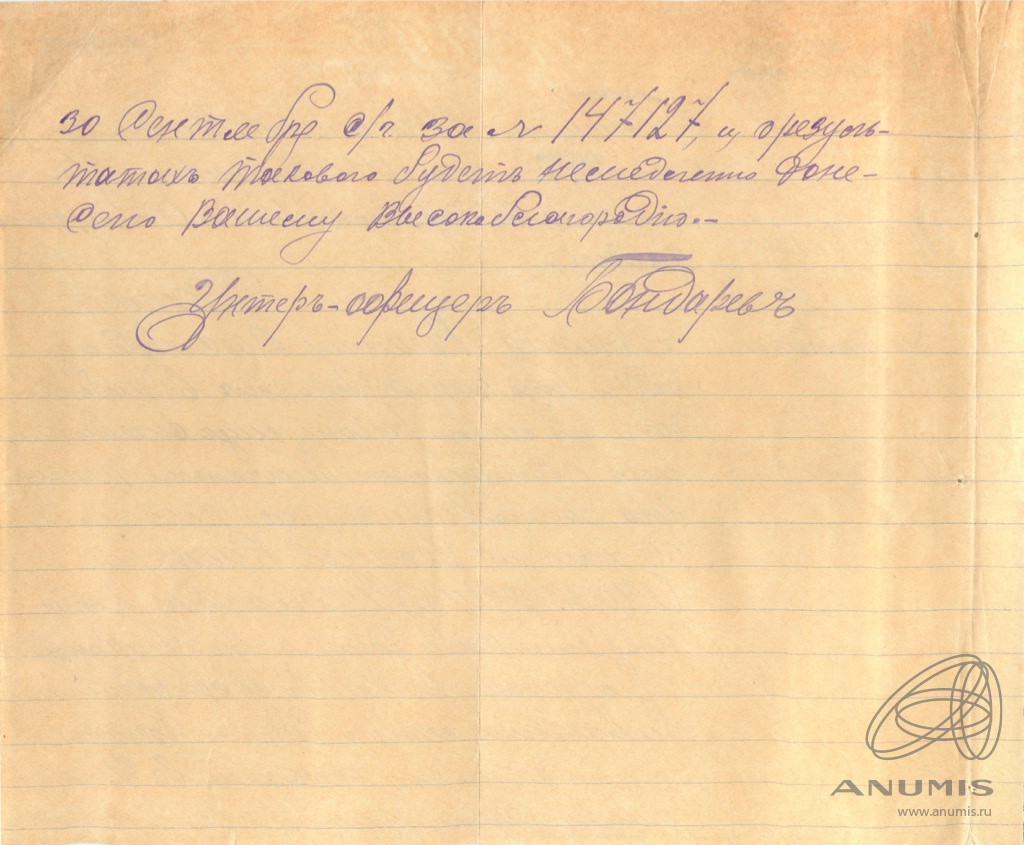 30 Сентября с/г за № 147127, и о резуль-
татахъ такового будетъ немедленно доне-
сено Вашему Высокоблагородію.-
Унтеръ-офицеръ Бондаревъ
ANUMIS
www.anumis.ru